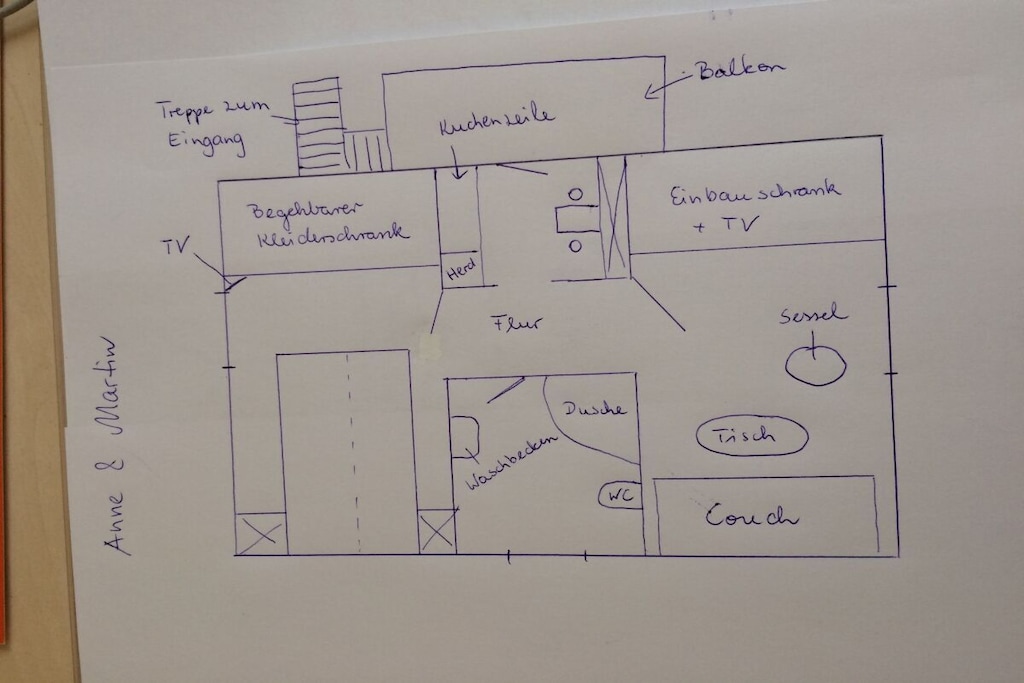 Balkon
Treppe zum
Eingang
Küchenzeile
Begehbarer
Kleiderschrank
Einbauschrank
+ TV
TV
Herd
Flur
Sessel
Dusche
Tisch
Waschbecken
WC
Couch
Anne & Martin